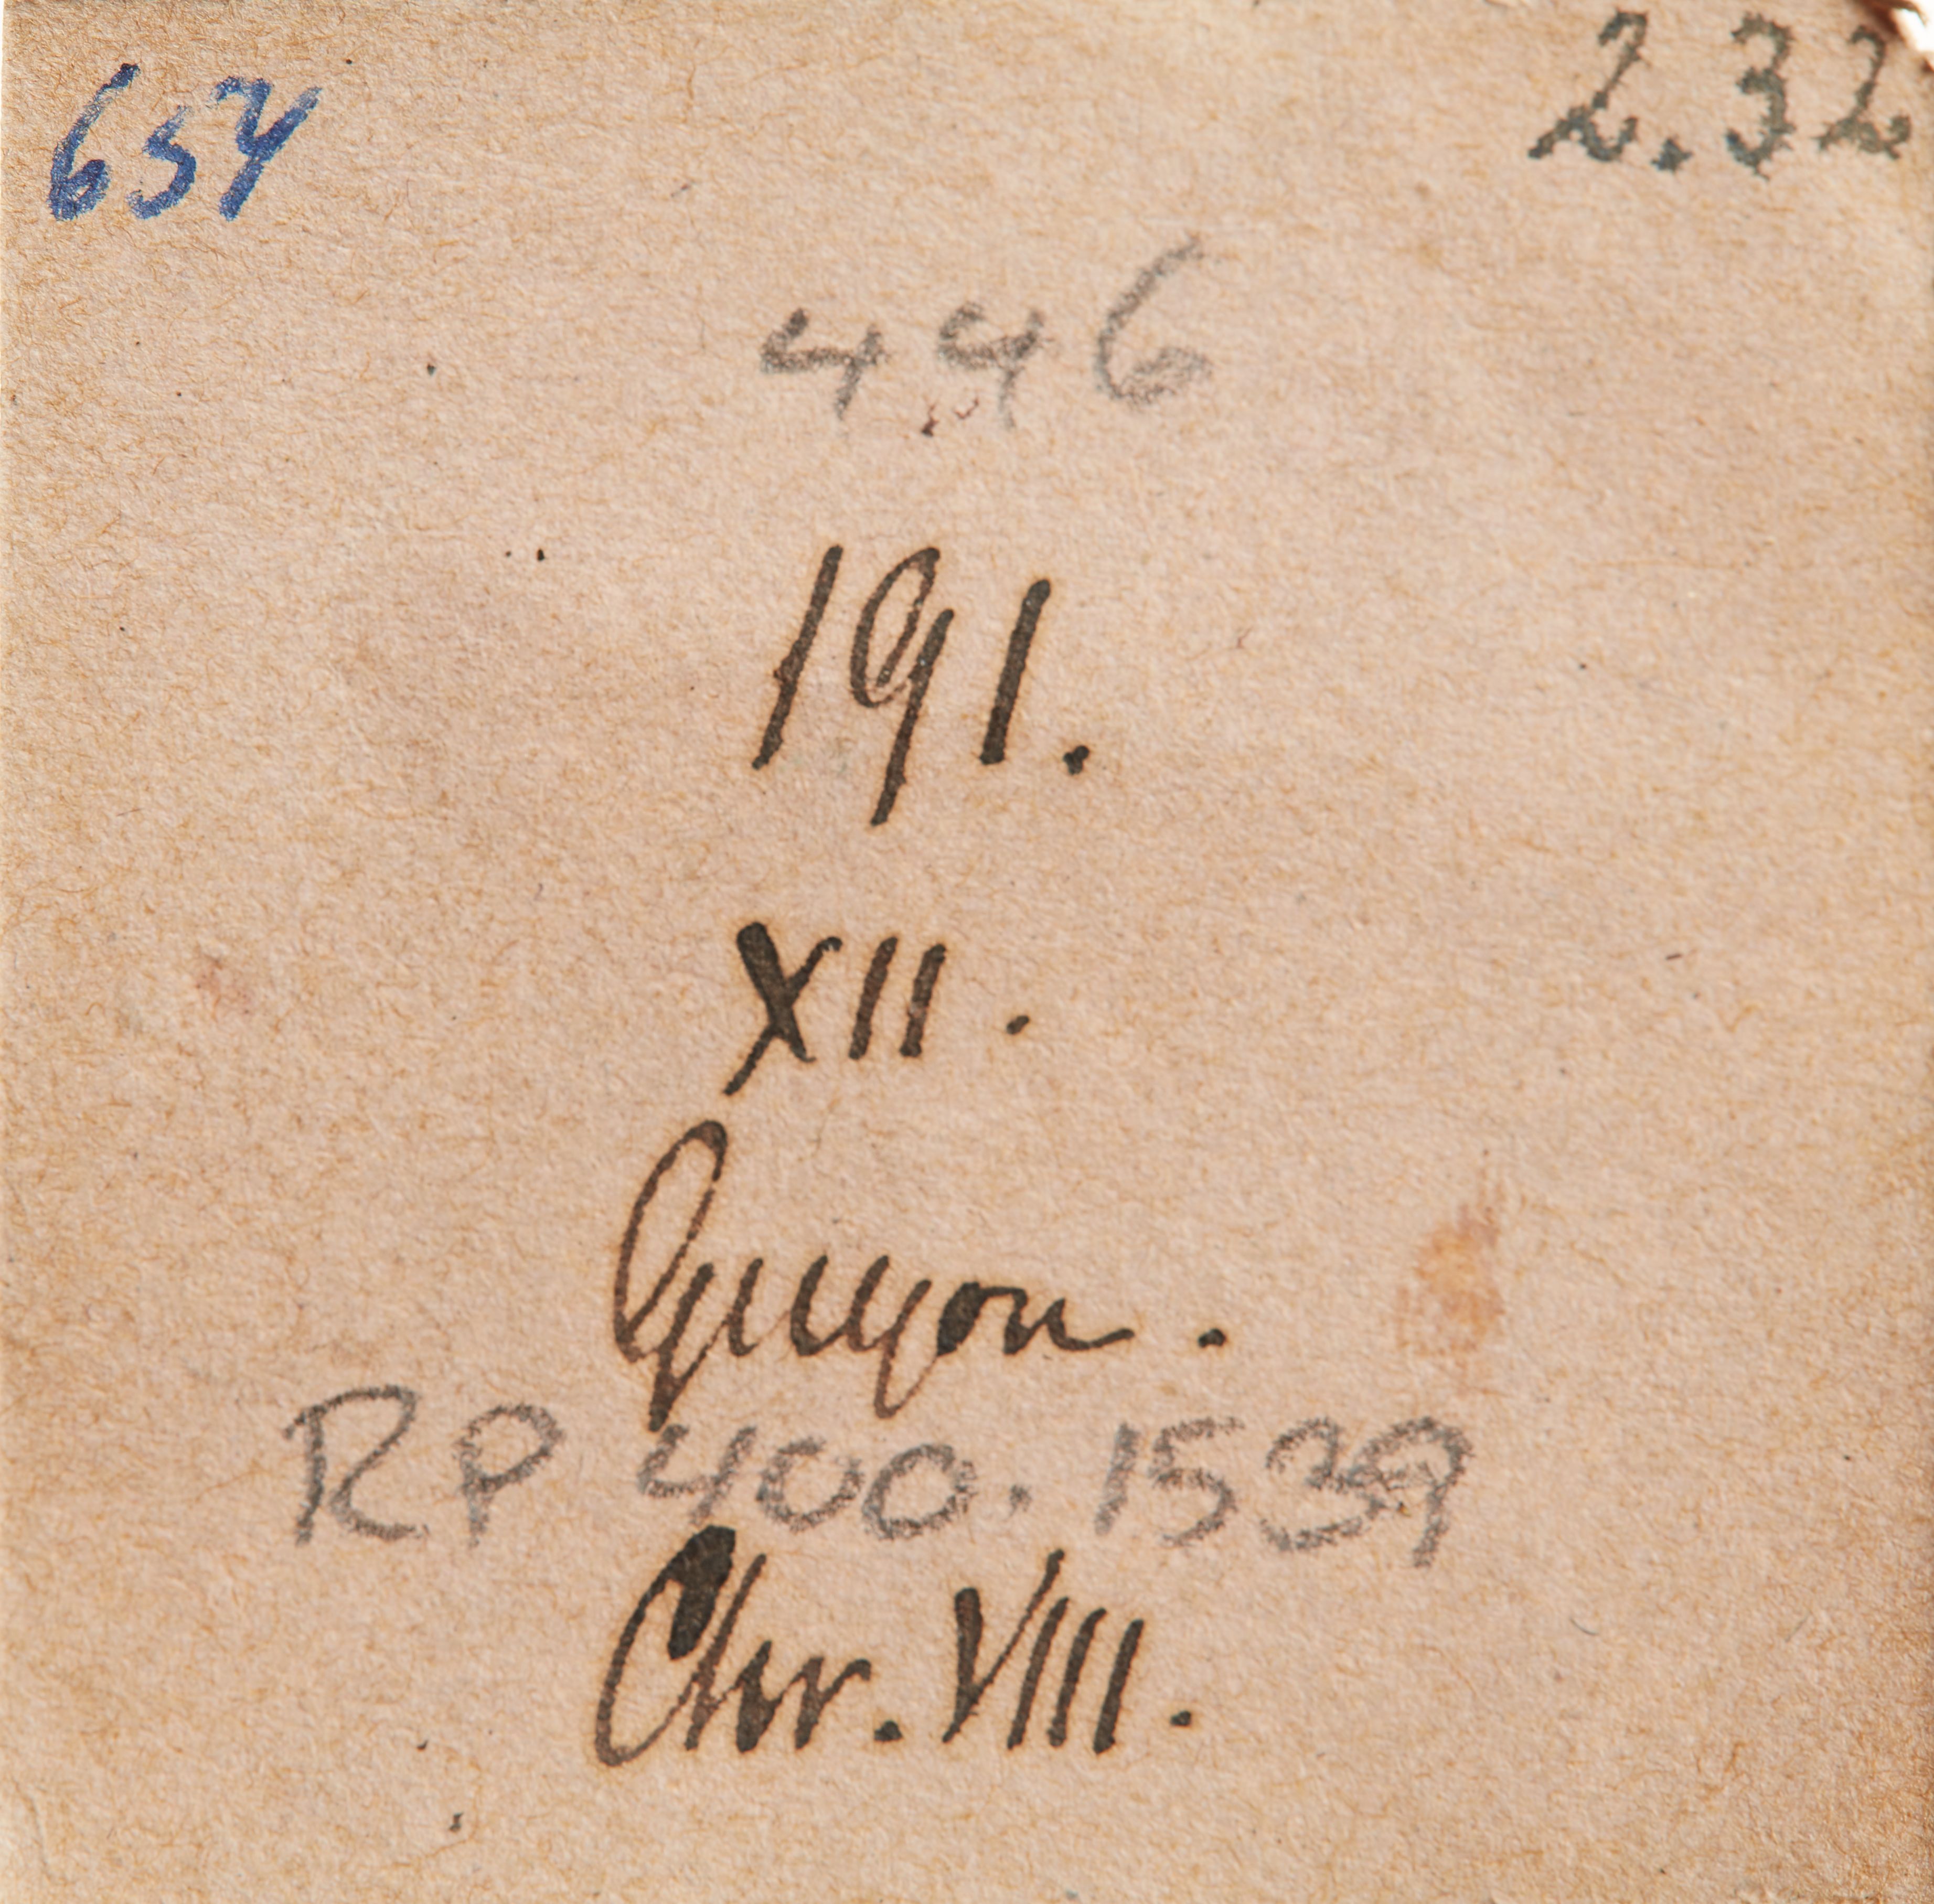 654 2.32
446
191.
XII.
Guyon.
RP 400.1539
Chr. VIII.